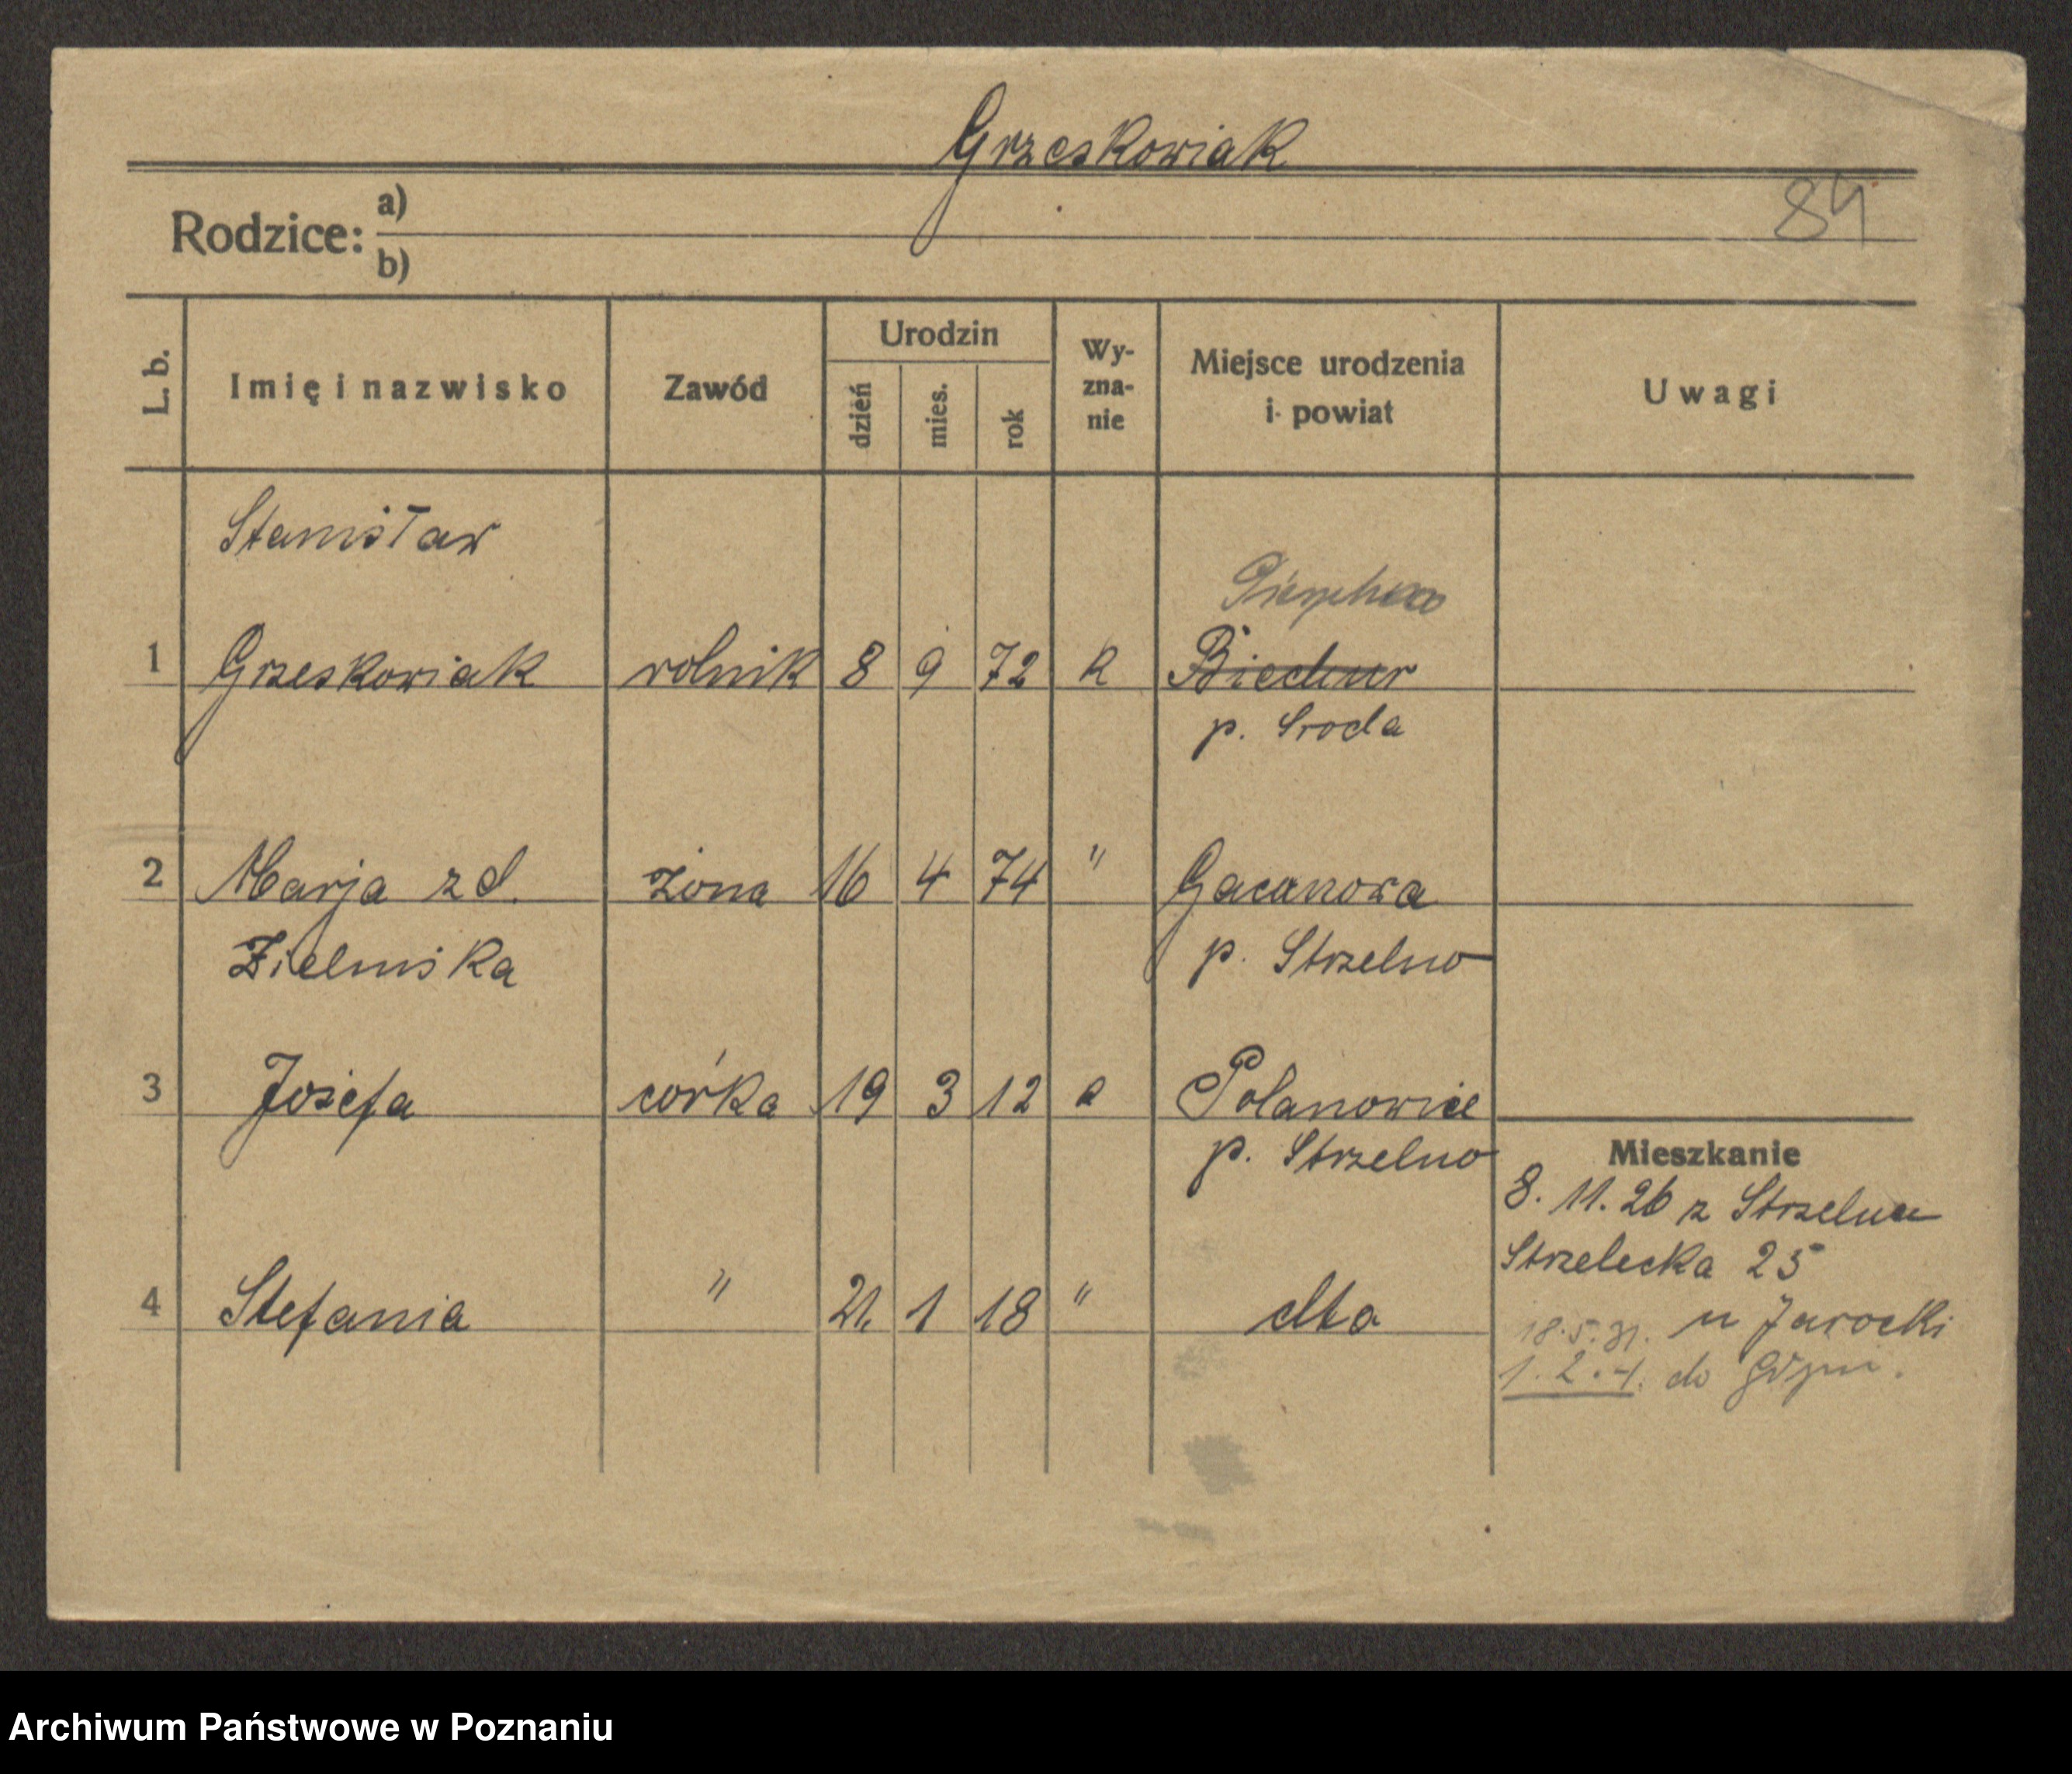 Grzeskowiak
84
Rodzice: a)
b)
L. b. Imię i nazwisko Zawód Urodzin dzień mies. rok Wy-zna-nie Miejsce urodzenia i powiat Uwagi
Stanisław
1 Grzeskowiak rolnik 8 9 72 k
p. Sroda
2 Marja zd. żona 16 4 74 " Gacanowa
Zielniska p. Strzelno
3 Jozefa corka 19 3 12 k Polanowice
p. Strzelno
Mieszkanie
8. 11. 26 z Strzelna
Strzelecka 25
4 Stefania " 21. 1 18 " dto
18.5.31. u Jarocki
1.2.4. do Gdyni.
Archiwum Państwowe w Poznaniu